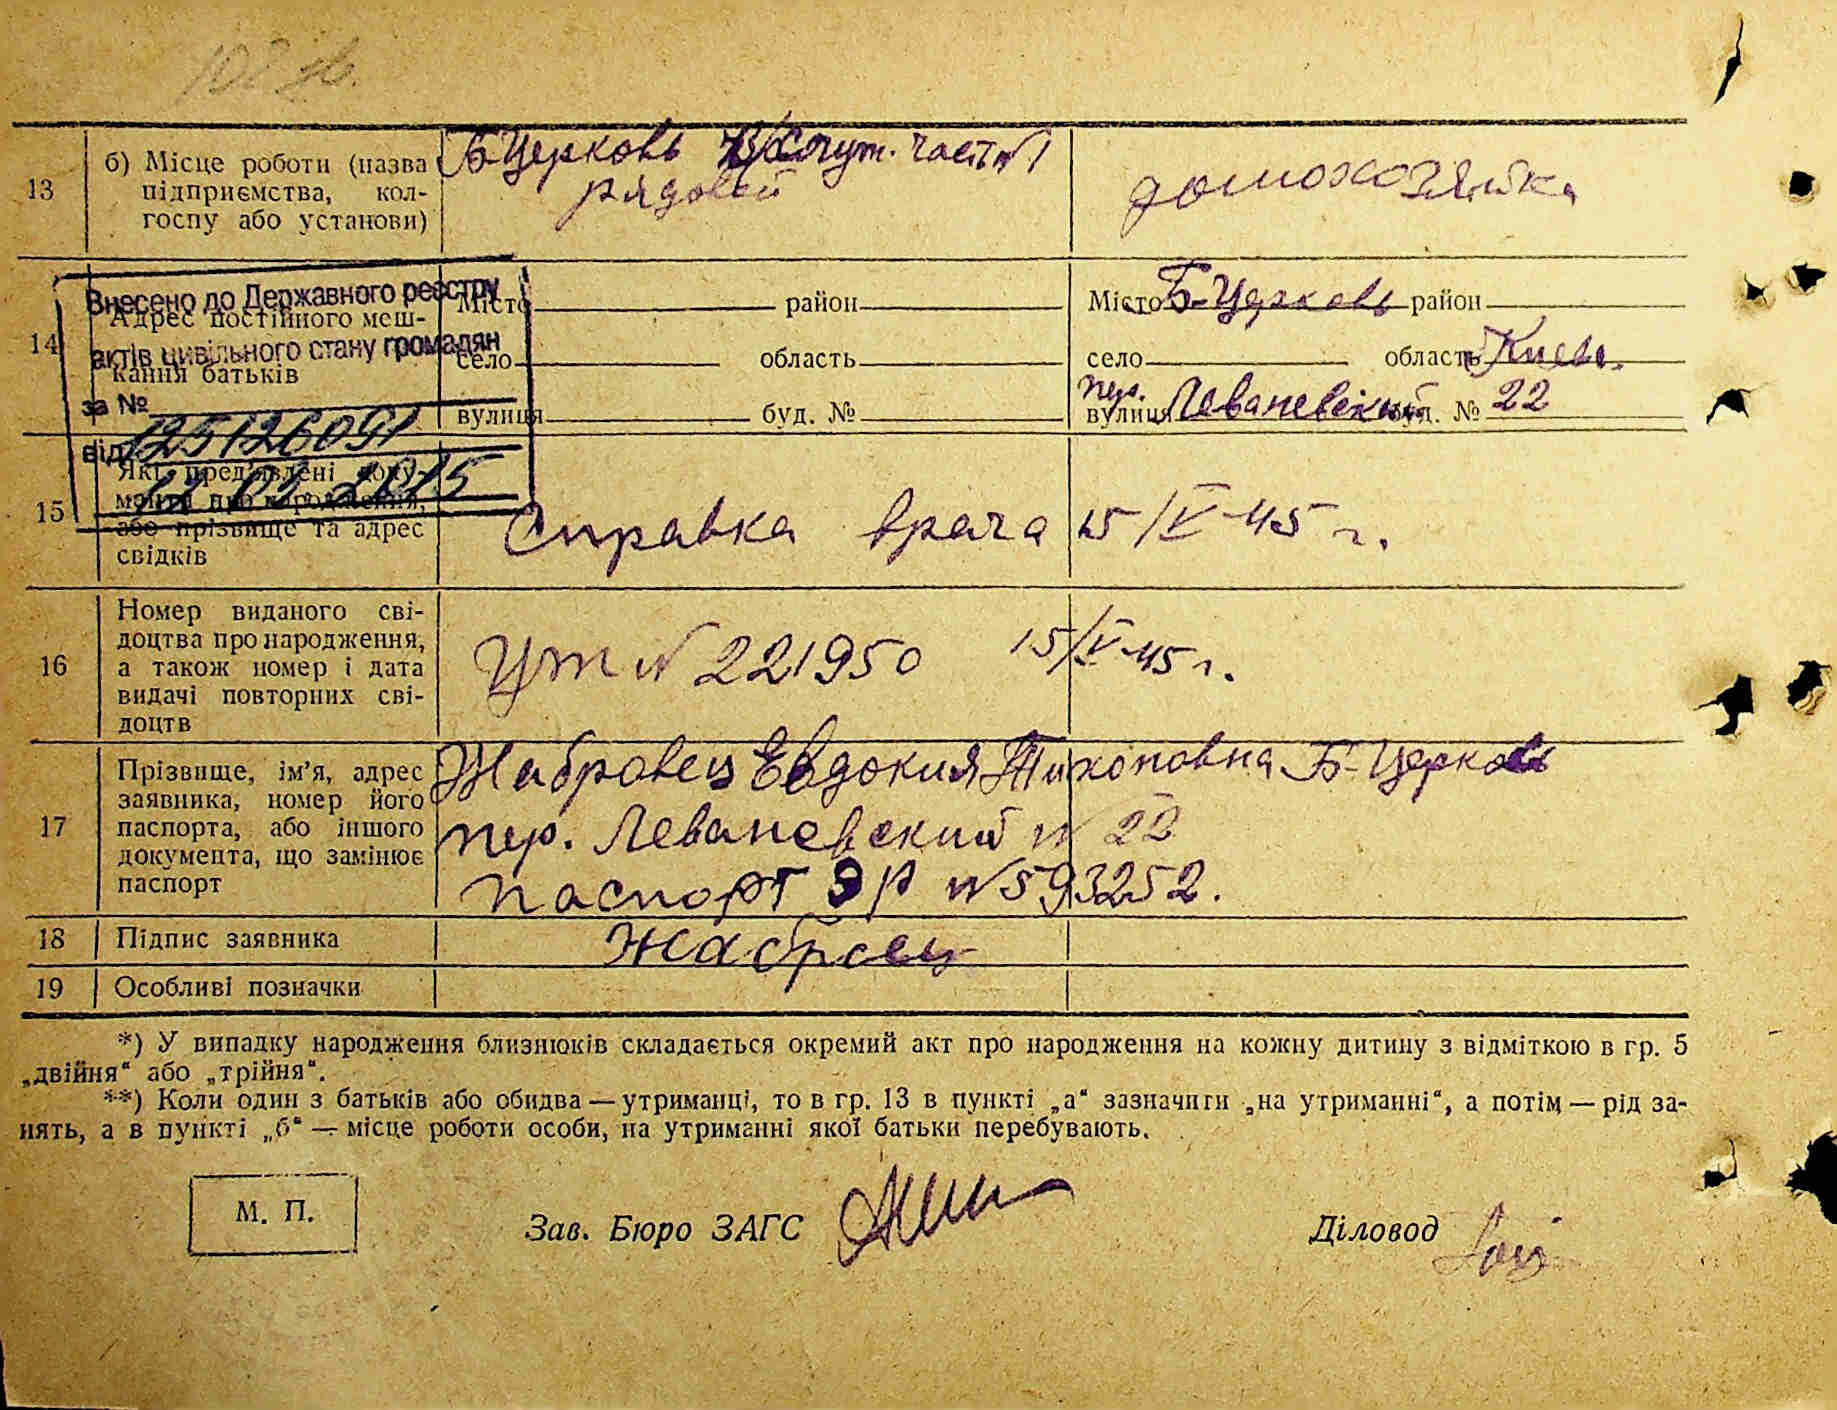 13
б) Місце роботи (назва
підприємства, кол-
госпу або установи)
Б-Церковь част №1
рядовой
домохозяйка
Внесено до Державного реєстру
актів цивільного стану громадян
за №
125126091
від
2015
14
Адрес постійного меш-
кання батьків
Місто район
село область
вулиця буд. №
Місто Б-Церковь район
село область Киев.
пер.
вулиця Леваневский буд. № 22
15
Які пред'явлені доку-
менти про народження,
або прізвище та адрес
свідків
Справка врача 15/V-45 г.
16
Номер виданого сві-
доцтва про народження,
а також номер і дата
видачі повторних сві-
доцтв
№ 221950 15/V-45 г.
17
Прізвище, ім'я, адрес
заявника, номер його
паспорта, або іншого
документа, що замінює
паспорт
Жабровец Евдокия Тихоновна Б-Церковь
пер. Леваневский № 22
паспорт ЭР № 593252.
18
Підпис заявника
19
Особливі позначки
*) У випадку народження близнюків складається окремий акт про народження на кожну дитину з відміткою в гр. 5
„двійня“ або „трійня“.
**) Коли один з батьків або обидва — утриманці, то в гр. 13 в пункті „а“ зазначити „на утриманні“, а потім — рід за-
нять, а в пункті „б“ — місце роботи особи, на утриманні якої батьки перебувають.
М. П.
Зав. Бюро ЗАГС
Діловод